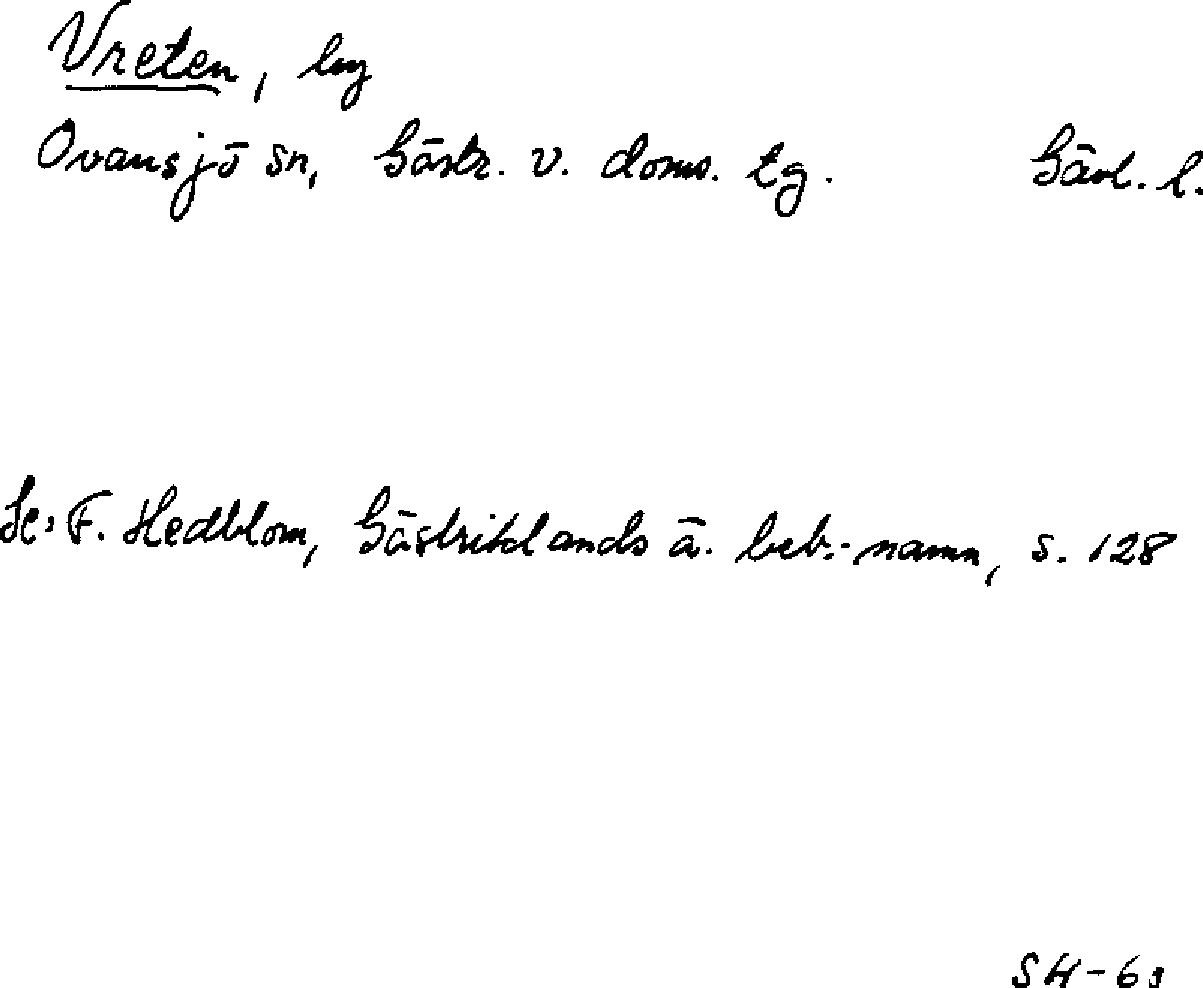 Vreten, by
Ovansjö sn, Gästr. v. doms. tg. Gävl. l.
Se: F. Hedblom, Gästriklands ä. beb.-namn, s. 128
SH-63